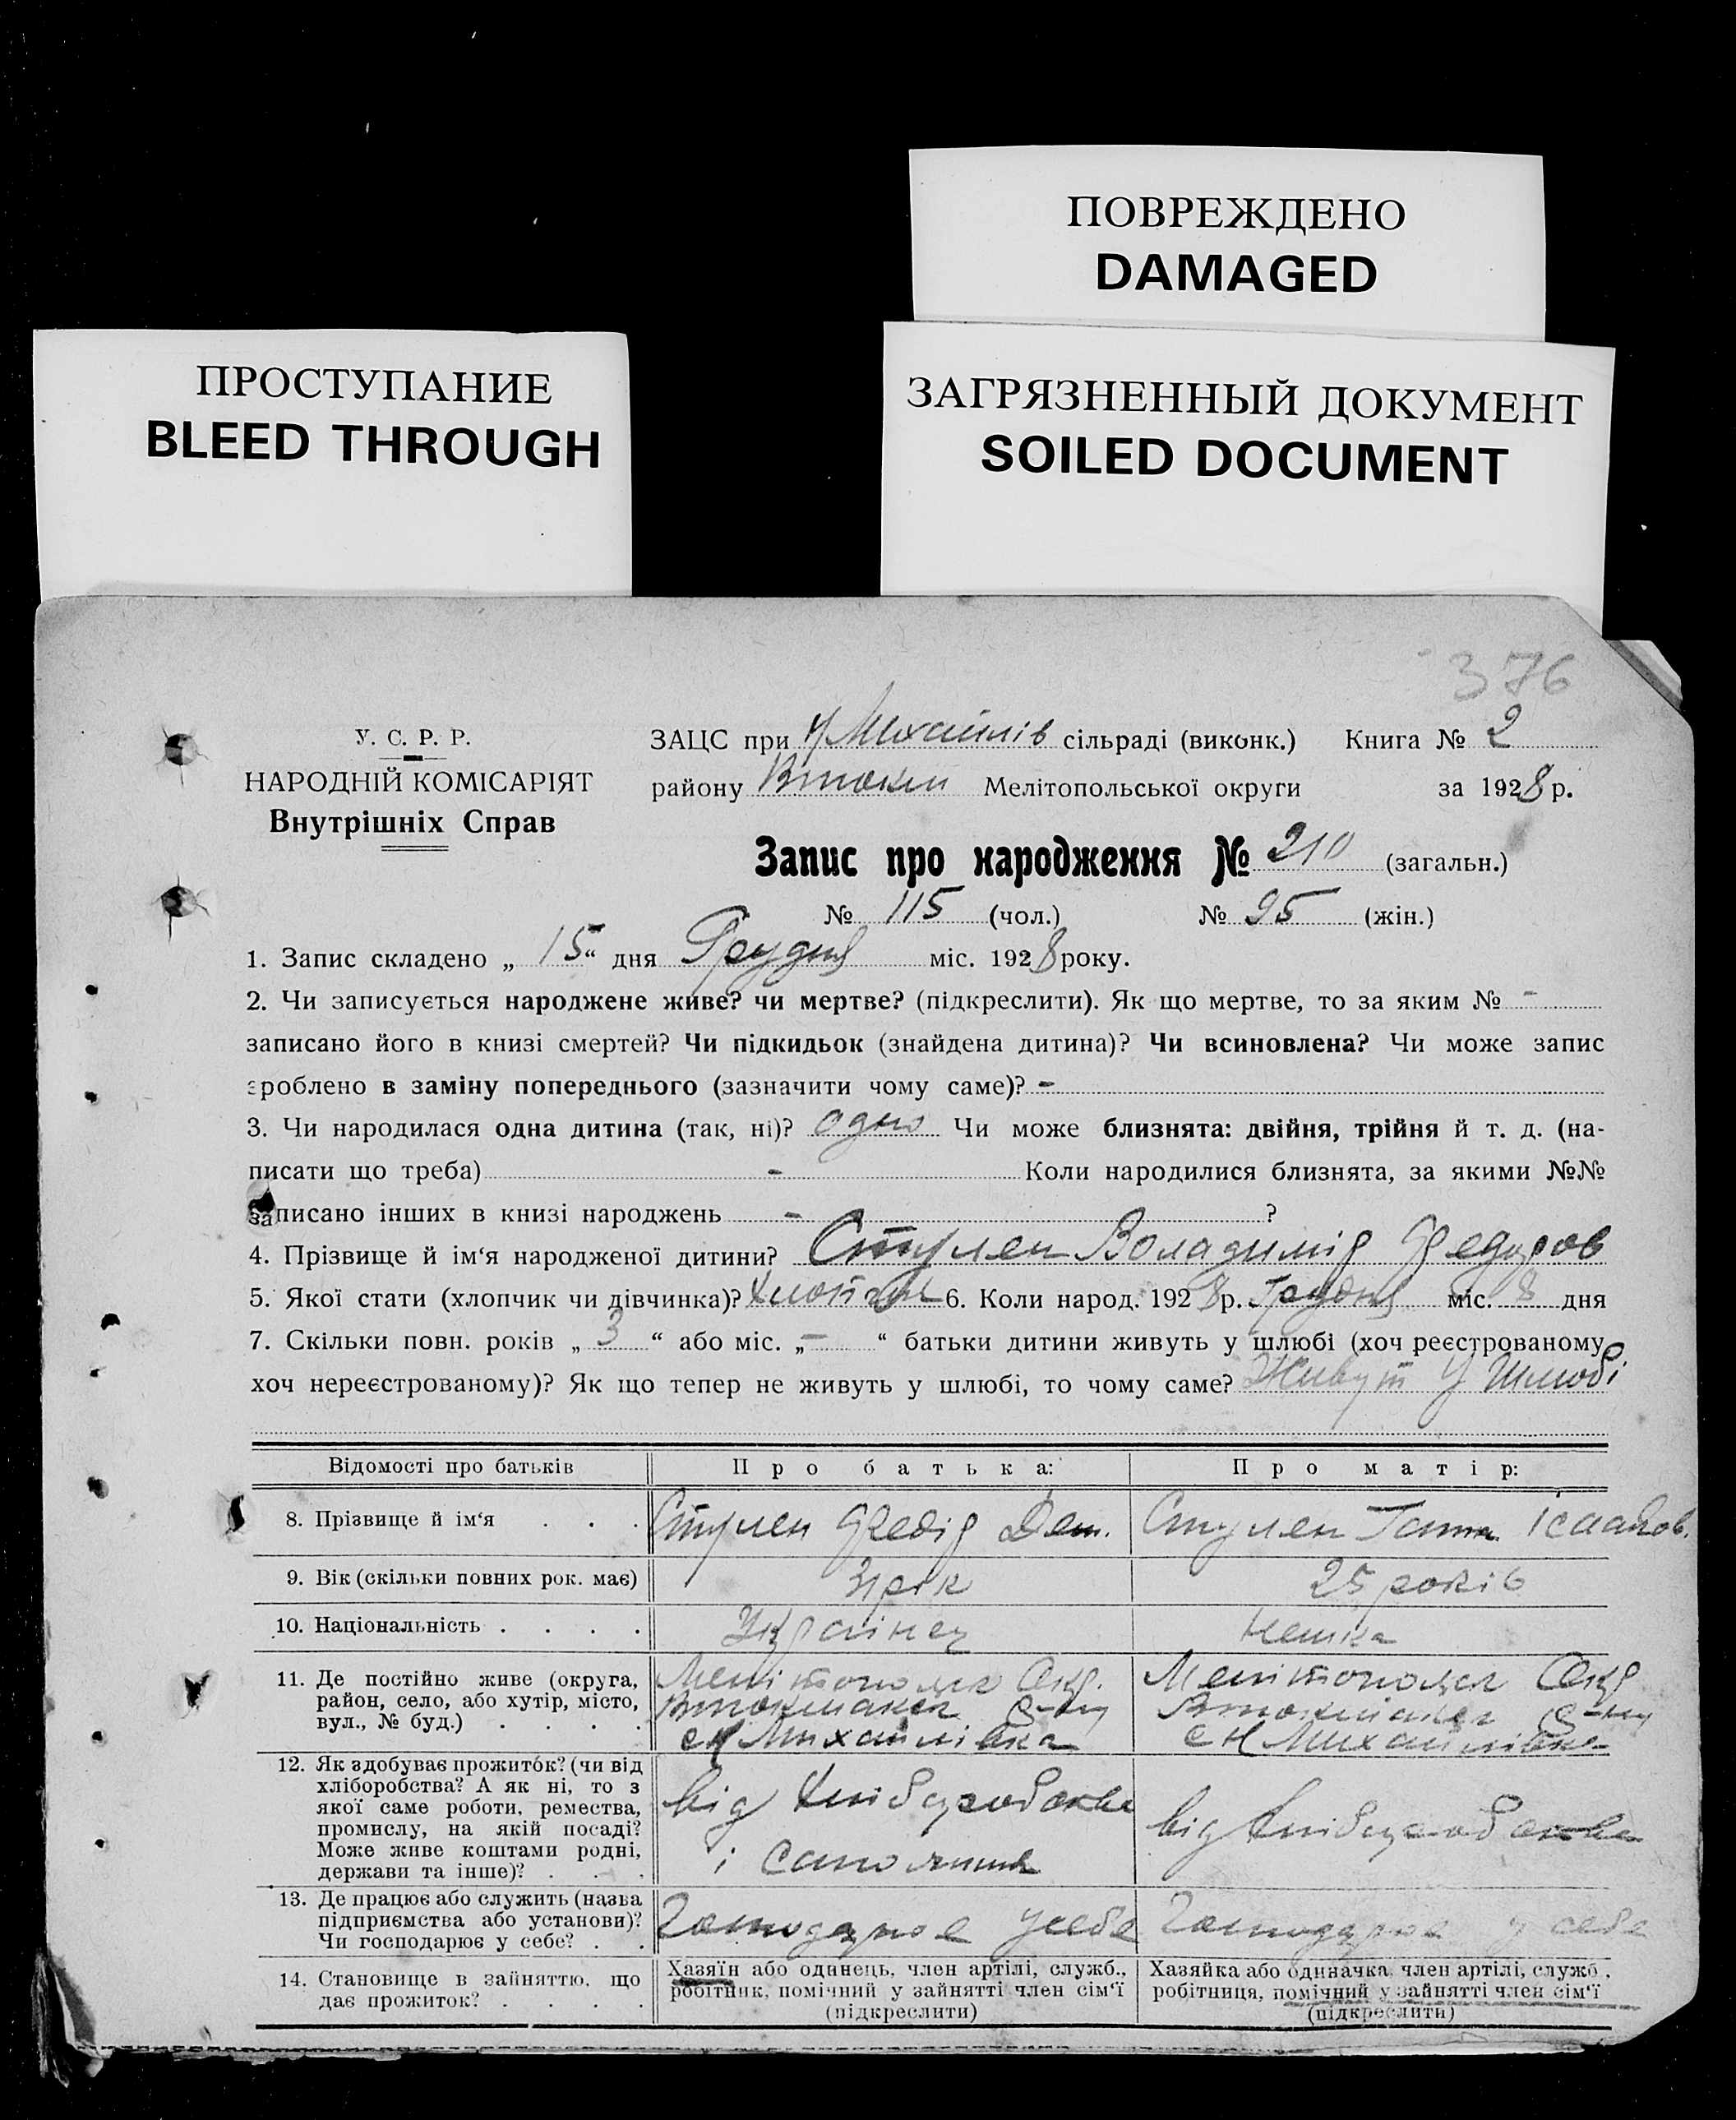 ПОВРЕЖДЕНО
DAMAGED
ПРОСТУПАНИЕ
BLEED THROUGH
ЗАГРЯЗНЕННЫЙ ДОКУМЕНТ
SOILED DOCUMENT
376
У. С. Р. Р.
НАРОДНІЙ КОМІСАРІЯТ
Внутрішніх Справ
ЗАЦС при Михайлів сільраді (виконк.) Книга № 2
району Втокм Мелітопольської округи за 1928 р.
Запис про народження № 210 (загальн.)
№ 115 (чол.) № 95 (жін.)
1. Запис складено „ 15 “ дня Грудня міс. 1928 року.
2. Чи записується народжене живе? чи мертве? (підкреслити). Як що мертве, то за яким № -
записано його в книзі смертей? Чи підкидьок (знайдена дитина)? Чи всиновлена? Чи може запис
зроблено в заміну попереднього (зазначити чому саме)? -
3. Чи народилася одна дитина (так, ні)? одно Чи може близнята: двійня, трійня й т. д. (на-
писати що треба) - Коли народилися близнята, за якими №№
записано інших в книзі народжень - ?
4. Прізвище й ім‘я народженої дитини? Стулен Воладимір Федоров
5. Якої стати (хлопчик чи дівчинка)? Хлопчик 6. Коли народ. 1928 р. Грудня міс. 8 дня
7. Скільки повн. років „ 3 “ або міс. „ - “ батьки дитини живуть у шлюбі (хоч реєстрованому,
хоч нереєстрованому)? Як що тепер не живуть у шлюбі, то чому саме? Живут У Шлюбі
Відомості про батьків Про батька: Про матір:
8. Прізвище й ім‘я . . . Стулен Федір Дем. Стулен Ганна Ісааков.
9. Вік (скільки повних рок. має) 31 рік 25 років
10. Національність . . . . Українец Немка
11. Де постійно живе (округа,
район, село, або хутір, місто,
вул., № буд.) . . . .
Мелітопольск Окр.
Втокмакск р-ну
с Н Михайлівка
Мелітопольск Окр
Втокмакск р-ну
с Н Михайлівка
12. Як здобуває прожиток? (чи від
хліборобства? А як ні, то з
якої саме роботи, ремества,
промислу, на якій посаді?
Може живе коштами родні,
держави та інше)? . . .
від Хліборобства
і
від Хліборобства
13. Де працює або служить (назва
підприємства або установи)?
Чи господарює у себе? . .
Господарює у себе
Господарює у себе
14. Становище в зайняттю, що
дає прожиток? . . . .
Хазяїн або одинець, член артілі, служб.,
робітник, помічний у зайнятті член сім‘ї
(підкреслити)
Хазяйка або одиначка, член артілі, служб.,
робітниця, помічний у зайнятті член сім‘ї
(підкреслити)